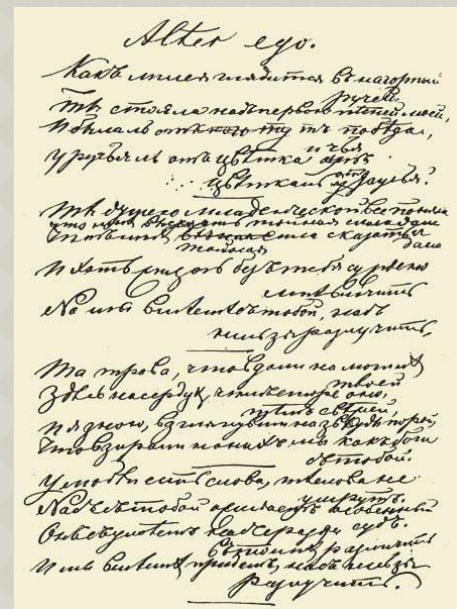 Alter ego.
Какъ лилея глядится въ нагорный
ручей,
Ты стояла надъ первою пѣсней моей,
И была ль побѣда,
и чья
У ручья ль отъ цвѣтка
цвѣтка ль ручья?
Ты душою младенческой все поняла
Что мнѣ высказать тайная сила дала
сила сказать
дано
И хоть жизнь безъ тебя суждено
мнѣ влачить
Но мы вмѣстѣ съ тобой, насъ
нельзя разлучить.
Та трава, что вдали на могилѣ
твоей
Здѣсь на сердцѣ, чѣмъ старѣ оно,
тѣмъ свѣжей,
И я знаю, взглянувши на звѣзды порой,
Что взирали на нихъ мы какъ боги
съ тобой.
У любви есть слова, тѣ слова не
умрутъ.
Насъ съ тобой ожидаетъ особенный
судъ.
Онъ сумѣетъ насъ сразу
въ толпѣ различить
И мы вмѣстѣ придемъ, насъ нельзя
разлучить.